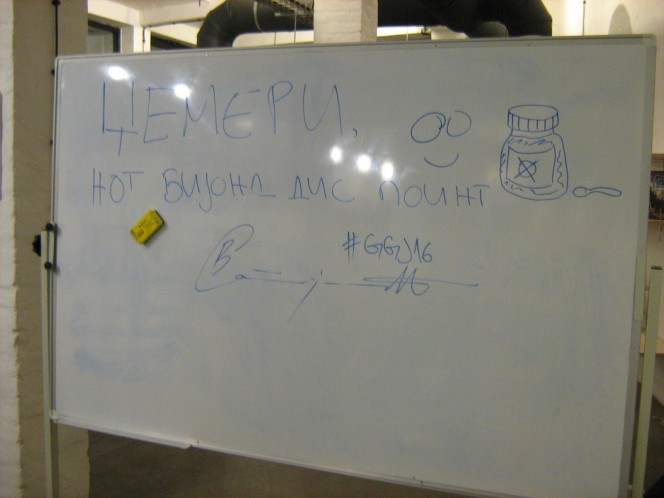 ЏЕМЕРИ,
НОТ БИЈОНД ДИС ПОИНТ
#GGJ16